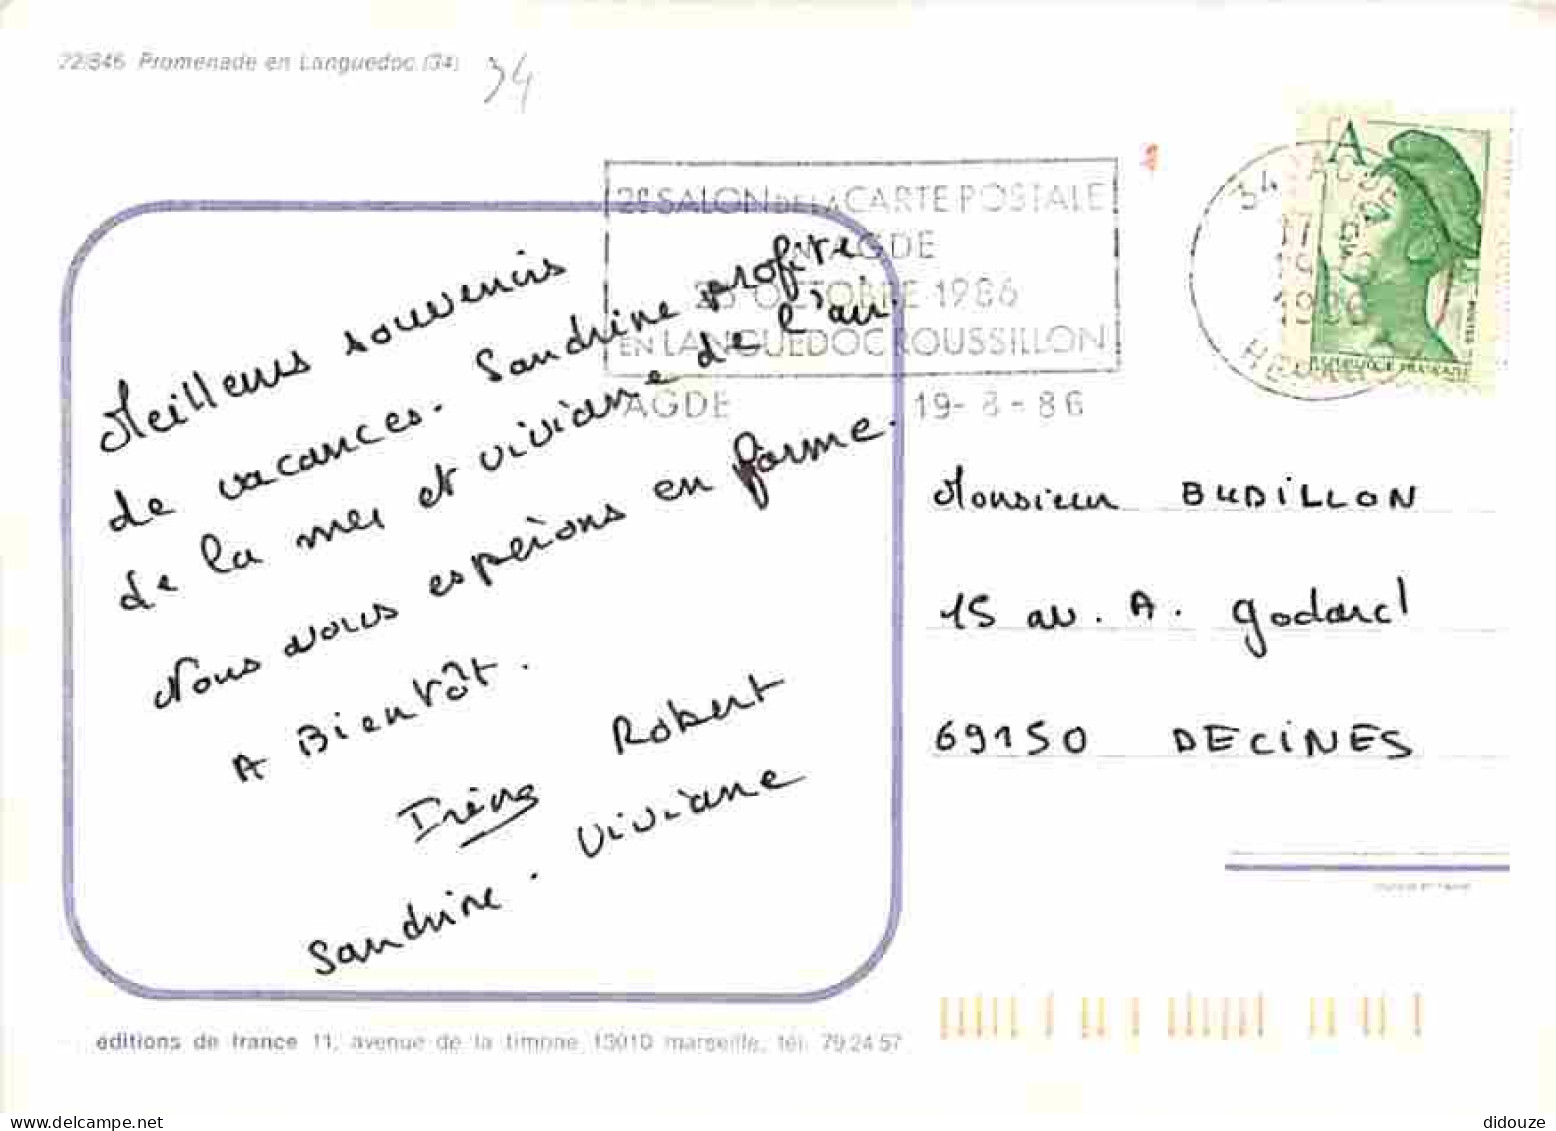 22/846 Promenade en Languedoc (34)
34
2e SALON DE LA CARTE POSTALE
AGDE
26 OCTOBRE 1986
EN LANGUEDOC ROUSSILLON
AGDE 19-8-86
34 AGDE
17H
19-8
1986
HERAULT
A
Meilleurs souvenirs
de vacances. Sandrine profite
de la mer et viviane de l'air.
Nous vous espérons en forme.
A Bientôt.
Irène Robert
Sandrine. Viviane
Monsieur BUDILLON
15 av. A. Godard
69150 DECINES
éditions de france 11, avenue de la timone, 13010 marseille, tél. 79.24.57
didouze